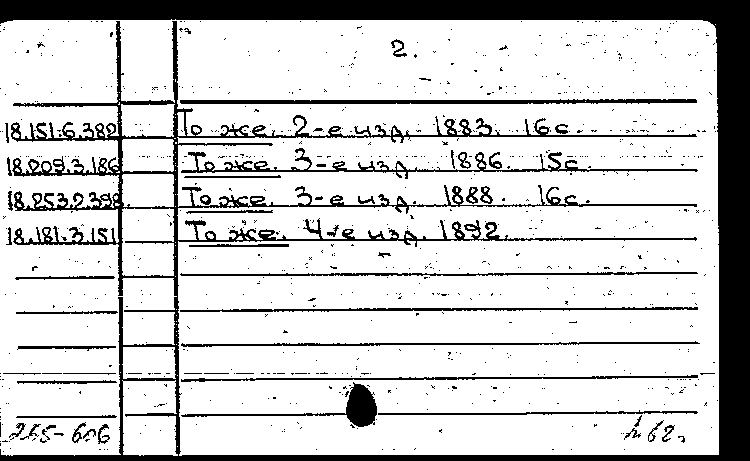 2.
18.151.6.382 То же. 2-е изд. 1883. 16с.
18.209.3.186 То же. 3-е изд. 1886. 15с.
18.253.2.398. То же. 3-е изд. 1888. 16с.
18.181.3.151 То же. 4-е изд. 1892.
265-606